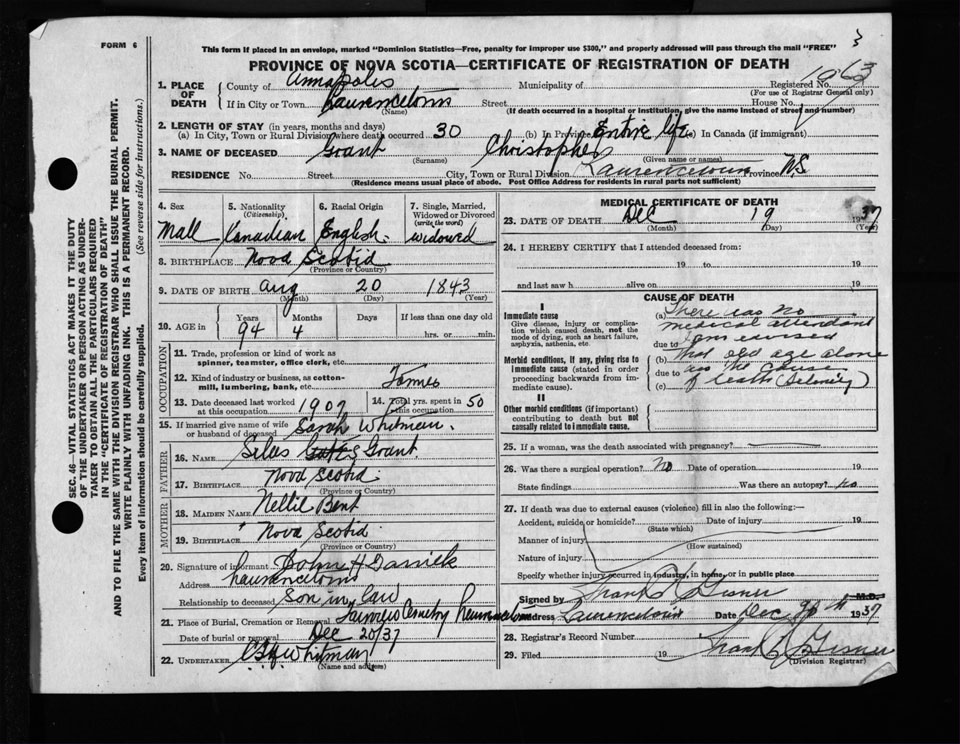 FORM 6
This form if placed in an envelope, marked "Dominion Statistics—Free, penalty for improper use $300," and properly addressed will pass through the mail "FREE"
3
PROVINCE OF NOVA SCOTIA—CERTIFICATE OF REGISTRATION OF DEATH
SEC. 46—VITAL STATISTICS ACT MAKES IT THE DUTY
OF THE UNDERTAKER OR PERSON ACTING AS UNDER-
TAKER TO OBTAIN ALL THE PARTICULARS REQUIRED
IN THE "CERTIFICATE OF REGISTRATION OF DEATH"
AND TO FILE THE SAME WITH THE DIVISION REGISTRAR WHO SHALL ISSUE THE BURIAL PERMIT.
WRITE PLAINLY WITH UNFADING INK. THIS IS A PERMANENT RECORD.
Every item of information should be carefully supplied. (See reverse side for instructions.)
1. PLACE OF DEATH
County of Annapolis Municipality of Registered No. 1063
(For use of Registrar General only)
If in City or Town Laurencetown Street House No.
(Name) (If death occurred in a hospital or institution, give the name instead of street and number)
2. LENGTH OF STAY (in years, months and days)
(a) In City, Town or Rural Division where death occurred 30 (b) In Province Entire life (c) In Canada (if immigrant)
3. NAME OF DECEASED Grant Christopher
(Surname) (Given name or names)
RESIDENCE No. Street City, Town or Rural Division Laurencetown Province N.S
(Residence means usual place of abode. Post Office Address for residents in rural parts not sufficient)
4. Sex 5. Nationality (Citizenship) 6. Racial Origin 7. Single, Married, Widowed or Divorced (write the word)
Mall Canadian English. widowed
8. BIRTHPLACE Nova Scotia
(Province or Country)
9. DATE OF BIRTH Aug 20 1843
(Month) (Day) (Year)
10. AGE in Years Months Days If less than one day old
94 4 hrs. or min.
OCCUPATION
11. Trade, profession or kind of work as spinner, teamster, office clerk, etc.
12. Kind of industry or business, as cotton-mill, lumbering, bank, etc.
13. Date deceased last worked at this occupation 1907 14. Total yrs. spent in this occupation 50
15. If married give name of wife or husband of deceased Sarah Whitman.
FATHER
16. NAME Silas Grant.
17. BIRTHPLACE Nova Scotia.
(Province or Country)
MOTHER
18. MAIDEN NAME Nellie Bent
19. BIRTHPLACE Nova Scotia.
(Province or Country)
20. Signature of informant John H Daniels
Address Laurencetown
Relationship to deceased Son in law
21. Place of Burial, Cremation or Removal Fairview Cemetry Laurencetown
Date of burial or removal Dec 20/37
22. UNDERTAKER Whitman
(Name and address)
MEDICAL CERTIFICATE OF DEATH
23. DATE OF DEATH Dec 19 1937
(Month) (Day) (Year)
24. I HEREBY CERTIFY that I attended deceased from:
19 to 19
and last saw h alive on 19
CAUSE OF DEATH
I
Immediate cause
Give disease, injury or complication which caused death, not the mode of dying, such as heart failure, asphyxia, asthenia, etc.
Morbid conditions, if any, giving rise to immediate cause (stated in order proceeding backwards from immediate cause).
II
Other morbid conditions (if important) contributing to death but not causally related to immediate cause.
(a) There was no
medical attendant
due to I am
(b) that old age alone
due to was the cause
(c) of death
25. If a woman, was the death associated with pregnancy?
26. Was there a surgical operation? No Date of operation 19
State findings Was there an autopsy? no
27. If death was due to external causes (violence) fill in also the following:—
Accident, suicide or homicide? Date of injury 19
(State which)
Manner of injury
(How sustained)
Nature of injury
Specify whether injury occurred in industry, in home, or in public place
Signed by Frank Gesner M.D.
Address Laurencetown Date Dec 1937
28. Registrar's Record Number
29. Filed 19 Frank Gesner
(Division Registrar)